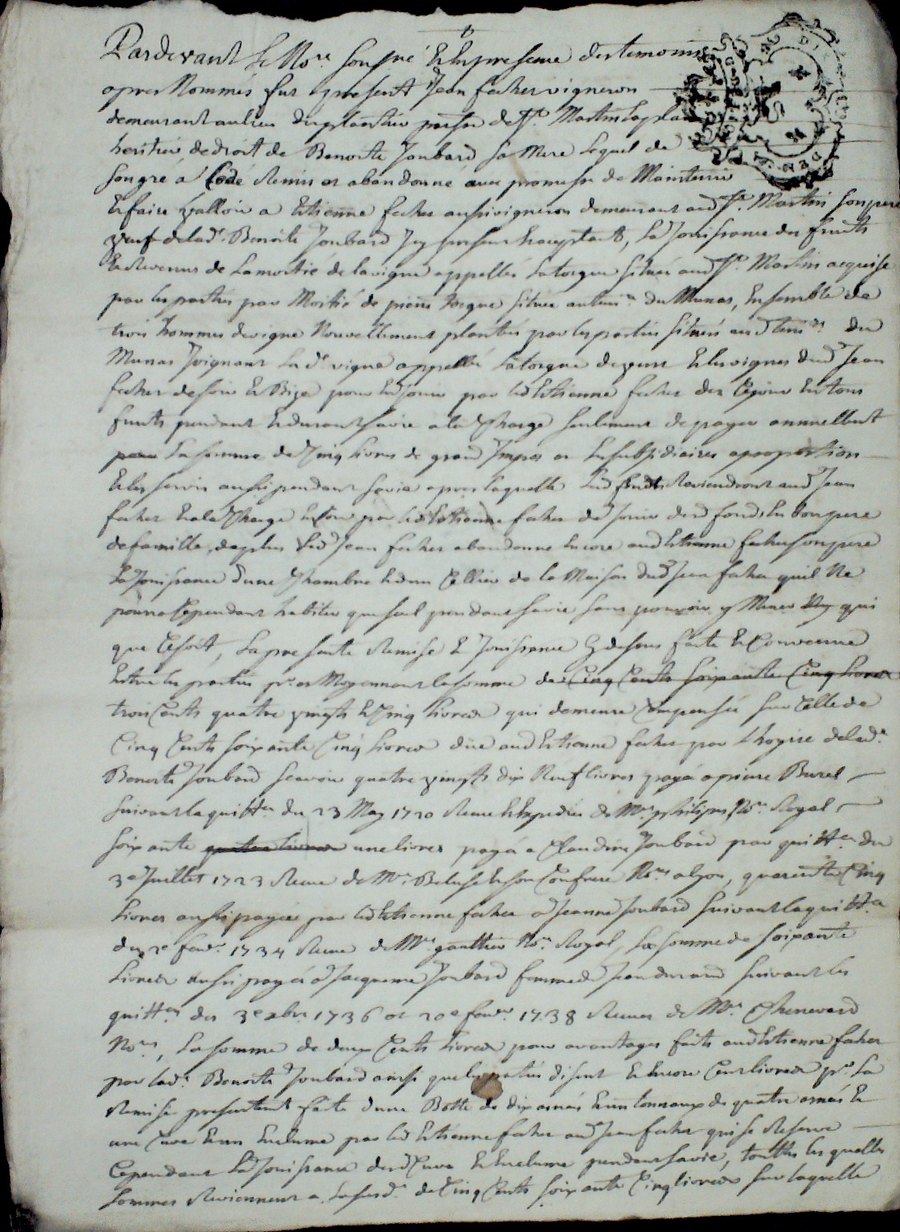 Pardevant le No.re soussigné et en presence des temoins
apres Nommés fut present Jean facher vigneron
demeurant au lieu du plantin parroisse de St. Martin
heritier de droit de Benoite Joubard sa Mere lequel de
son gre a cedé Remis et abandonné avec promesse de Maintenir
et faire valloir a Etienne facher aussi vigneron demeurant aud. St. Martin son pere
veuf de lad. Benoite Joubard icy present et acceptant, la Jouissance des fruits
et Revenus de la moitié de la vigne appellée Latorgue située aud. St. Martin acquise
par les parties par Moitié de pierre située au du Munas, Ensemble de
trois hommes de vigne Nouvellement plantés par les parties situés aud. du
Munas Joignant lad. vigne appellée Latorgue de vent et les vignes dud. Jean
facher de soir et Bize pour en Jouir par led. Etienne facher des ce jour en tous
fruits pendant et durant sa vie a la Charge seulement de payer annuellement
la somme de Cinq livres de grand Impos et les subsidiaires a proportion
et les servis aussi pendant sa vie apres laquelle led. fonds Reviendront aud. Jean
facher et a la Charge encore par led. Etienne facher de Jouir desd. fonds en bon pere
de famille, de plus led. Jean facher abandonne encore aud. Etienne facher son pere
la Jouissance d'une Chambre et d'un Cellier de la Maison dud. Jean facher qu'il Ne
pourra Cependant habiter que seul pendant sa vie sans pouvoir y Mener qui
que Ce soit, la presente Remise et Jouissance Cy dessus faite et Convenue
entre les parties pr. et Moyennant la somme de Cinq Cents soixante Cinq livres
trois Cents quatre vingts et Cinq livres qui demeure Compensée sur Celle de
Cinq Cents soixante Cinq livres düe aud. Etienne facher par l'hoyrie de lad.
Benoite Joubard scavoir quatre vingts dix Neuf livres payé a pierre Burel
suivant la quitt.ce du 23 May 1720 Receue et Expediée de Me. philipes No.re Royal
soixante quatre livres une livres payé a Claudine Joubard par quitt.ce du
3e Juillet 1723 Receue de Me. et son Confrere No.res a lyon, quarente Cinq
livres aussi payée par led. Etienne facher a Jeanne Joubard suivant la quitt.ce
du fevr. 1734 Receue de Me. gaultier No.re Royal, la somme de soixante
livres aussi payés a Jacqueme Joubard femme de Jean durand suivant les
quitt.ces des 3e xbre 1736 et 20e fevr. 1738 Receues de Me. Chenevard
No.re, la somme de deux Cents livres pour avantages faits aud. Etienne facher
par lad. Benoite Joubard ainsi que les parties disent et encore Cent livres pr. la
Remise presentement faite d'une Botte de dix anées et un tonneaux de quatre anées et
une Cuve et un Enclume par led. Etienne facher aud. Jean facher qui se Reserve
Cependant la Jouissance desd. Cuve et Enclume pendant sa vie, touttes lesquelles
sommes Reviennent a la susd. de Cinq Cents soixante Cinq livres sur laquelle